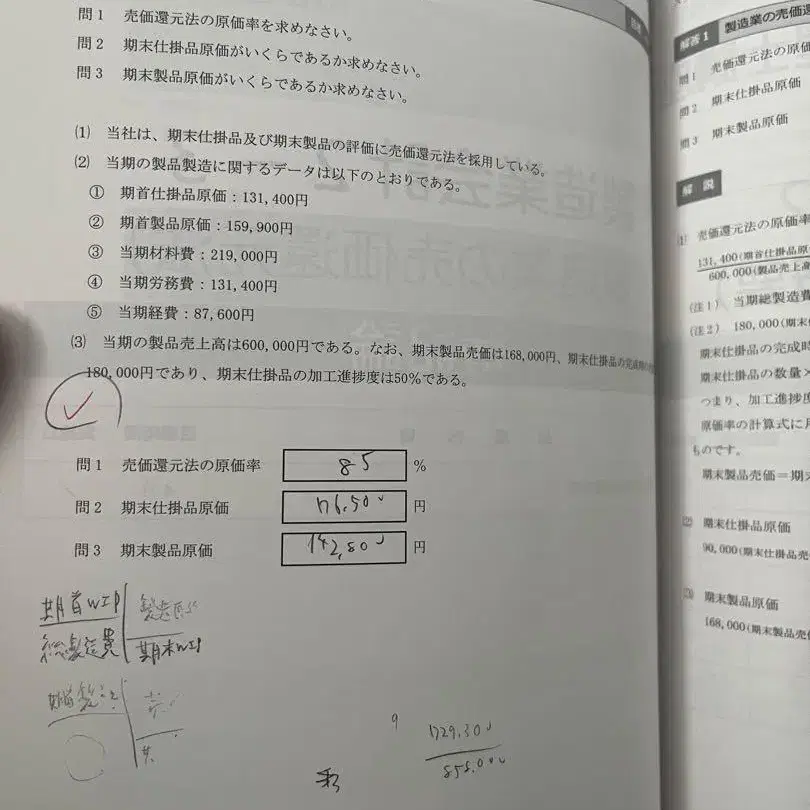 問1 売価還元法の原価率を求めなさい。
問2 期末仕掛品原価がいくらであるか求めなさい。
問3 期末製品原価がいくらであるか求めなさい。
⑴ 当社は、期末仕掛品及び期末製品の評価に売価還元法を採用している。
⑵ 当期の製品製造に関するデータは以下のとおりである。
① 期首仕掛品原価:131,400円
② 期首製品原価:159,900円
③ 当期材料費:219,000円
④ 当期労務費:131,400円
⑤ 当期経費:87,600円
⑶ 当期の製品売上高は600,000円である。なお、期末製品売価は168,000円、期末仕掛品の完成
180,000円であり、期末仕掛品の加工進捗度は50%である。
問1 売価還元法の原価率 85 %
問2 期末仕掛品原価 76,500 円
問3 期末製品原価 142,800 円
期首WIP
総製造費 期末WIP
729,300
858,000
解答1 製造業の売価還
問1 売価還元法の原価
問2 期末仕掛品原価
問3 期末製品原価
解説
⑴ 売価還元法の原価率
131,400(期首仕掛品原
600,000(製品売上高
(注1) 当期総製造費
(注2) 180,000(期末
期末仕掛品の完成時
期末仕掛品の数量×
つまり、加工進捗度
原価率の計算式に
ものです。
期末製品売価=期末
⑵ 期末仕掛品原価
90,000(期末仕掛品売
⑶ 期末製品原価
168,000(期末製品売価